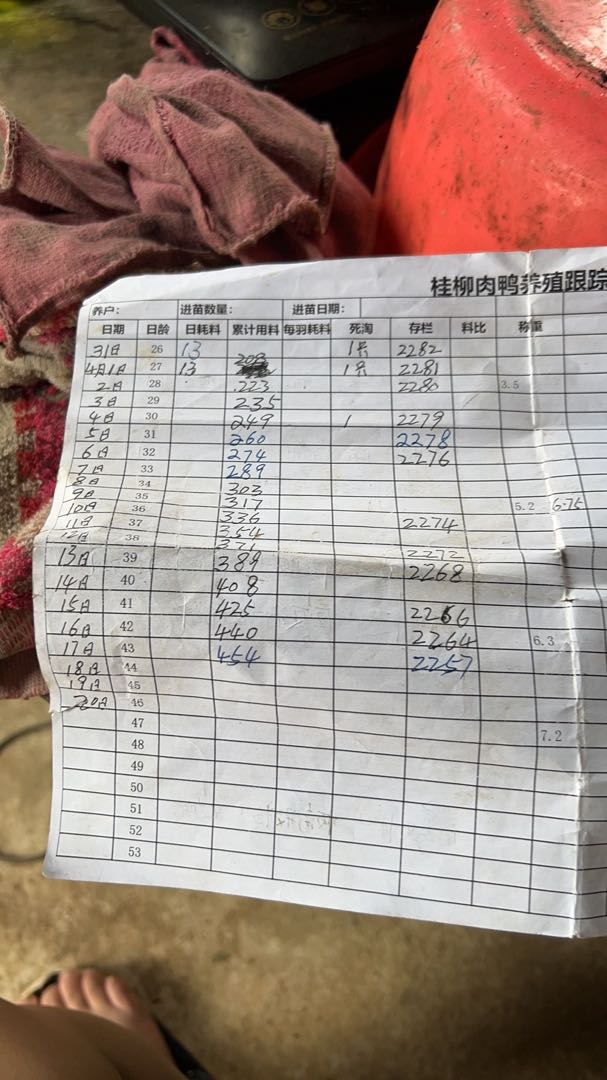 桂柳肉鸭养殖跟踪
养户: 进苗数量: 进苗日期:
日期 日龄 日耗料 累计用料 每羽耗料 死淘 存栏 料比 称重
31日 26 13 1只 2282
4月1日 27 13 208 1只 2281
2日 28 223 2280 3.5
3日 29 235
4日 30 249 1 2279
5日 31 260 2278
6日 32 274 2276
7日 33 289
8日 34 303
9日 35 317 5.2 6.75
10日 36 336
11日 37 354 2274
12日 38 371 2272
13日 39 389 2268
14日 40 408
15日 41 425 2266
16日 42 440 2264 6.3
17日 43 454 2257
18日 44
19日 45
20日 46
47
48 7.2
49
50
51
52
53